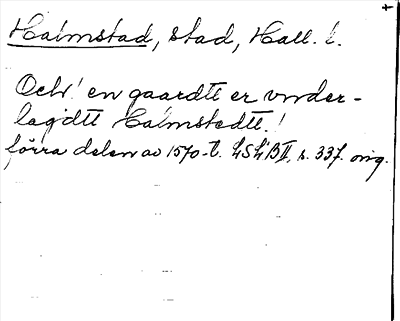 Halmstad, stad, Hall. l.
Och! en gaardtt er vnder-
lagdtt Halmstedtt!
förra delen av 1570-t. LSLB II, s. 337. orig.